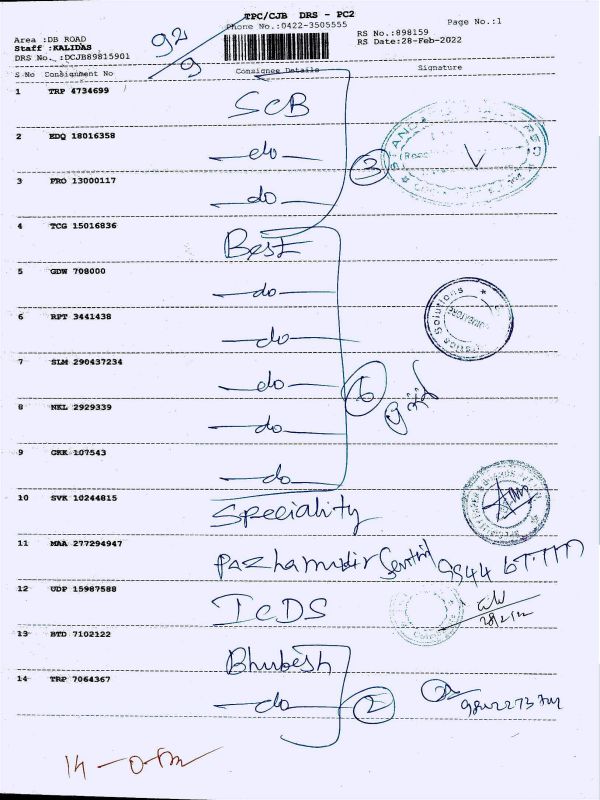 TPC/CJB DRS - PC2
Phone No.:0422-3505555
Page No.:1
Area :DB ROAD
Staff :KALIDAS
DRS No. :DCJB89815901
RS No.:898159
RS Date:28-Feb-2022
92/9
S No Consignment No Consignee Details Signature
1 TRP 4734699 SCB
2 EDQ 18016358 — do —
3 PRO 13000117 — do —
3
4 TCG 15016836 Best
5 GDW 708000 — do —
6 RPT 3441438 — do —
7 SLM 290437234 — do —
8 NKL 2929339 — do —
9 GKK 107543 — do —
6
Solutions
10 SVK 10244815 Speciality
11 MAA 277294947 Pazhamudir
12 UDP 15987588 ICDS
28/2/22
13 BTD 7102122 Bhubesh
14 TRP 7064367 — do —
2
14 —